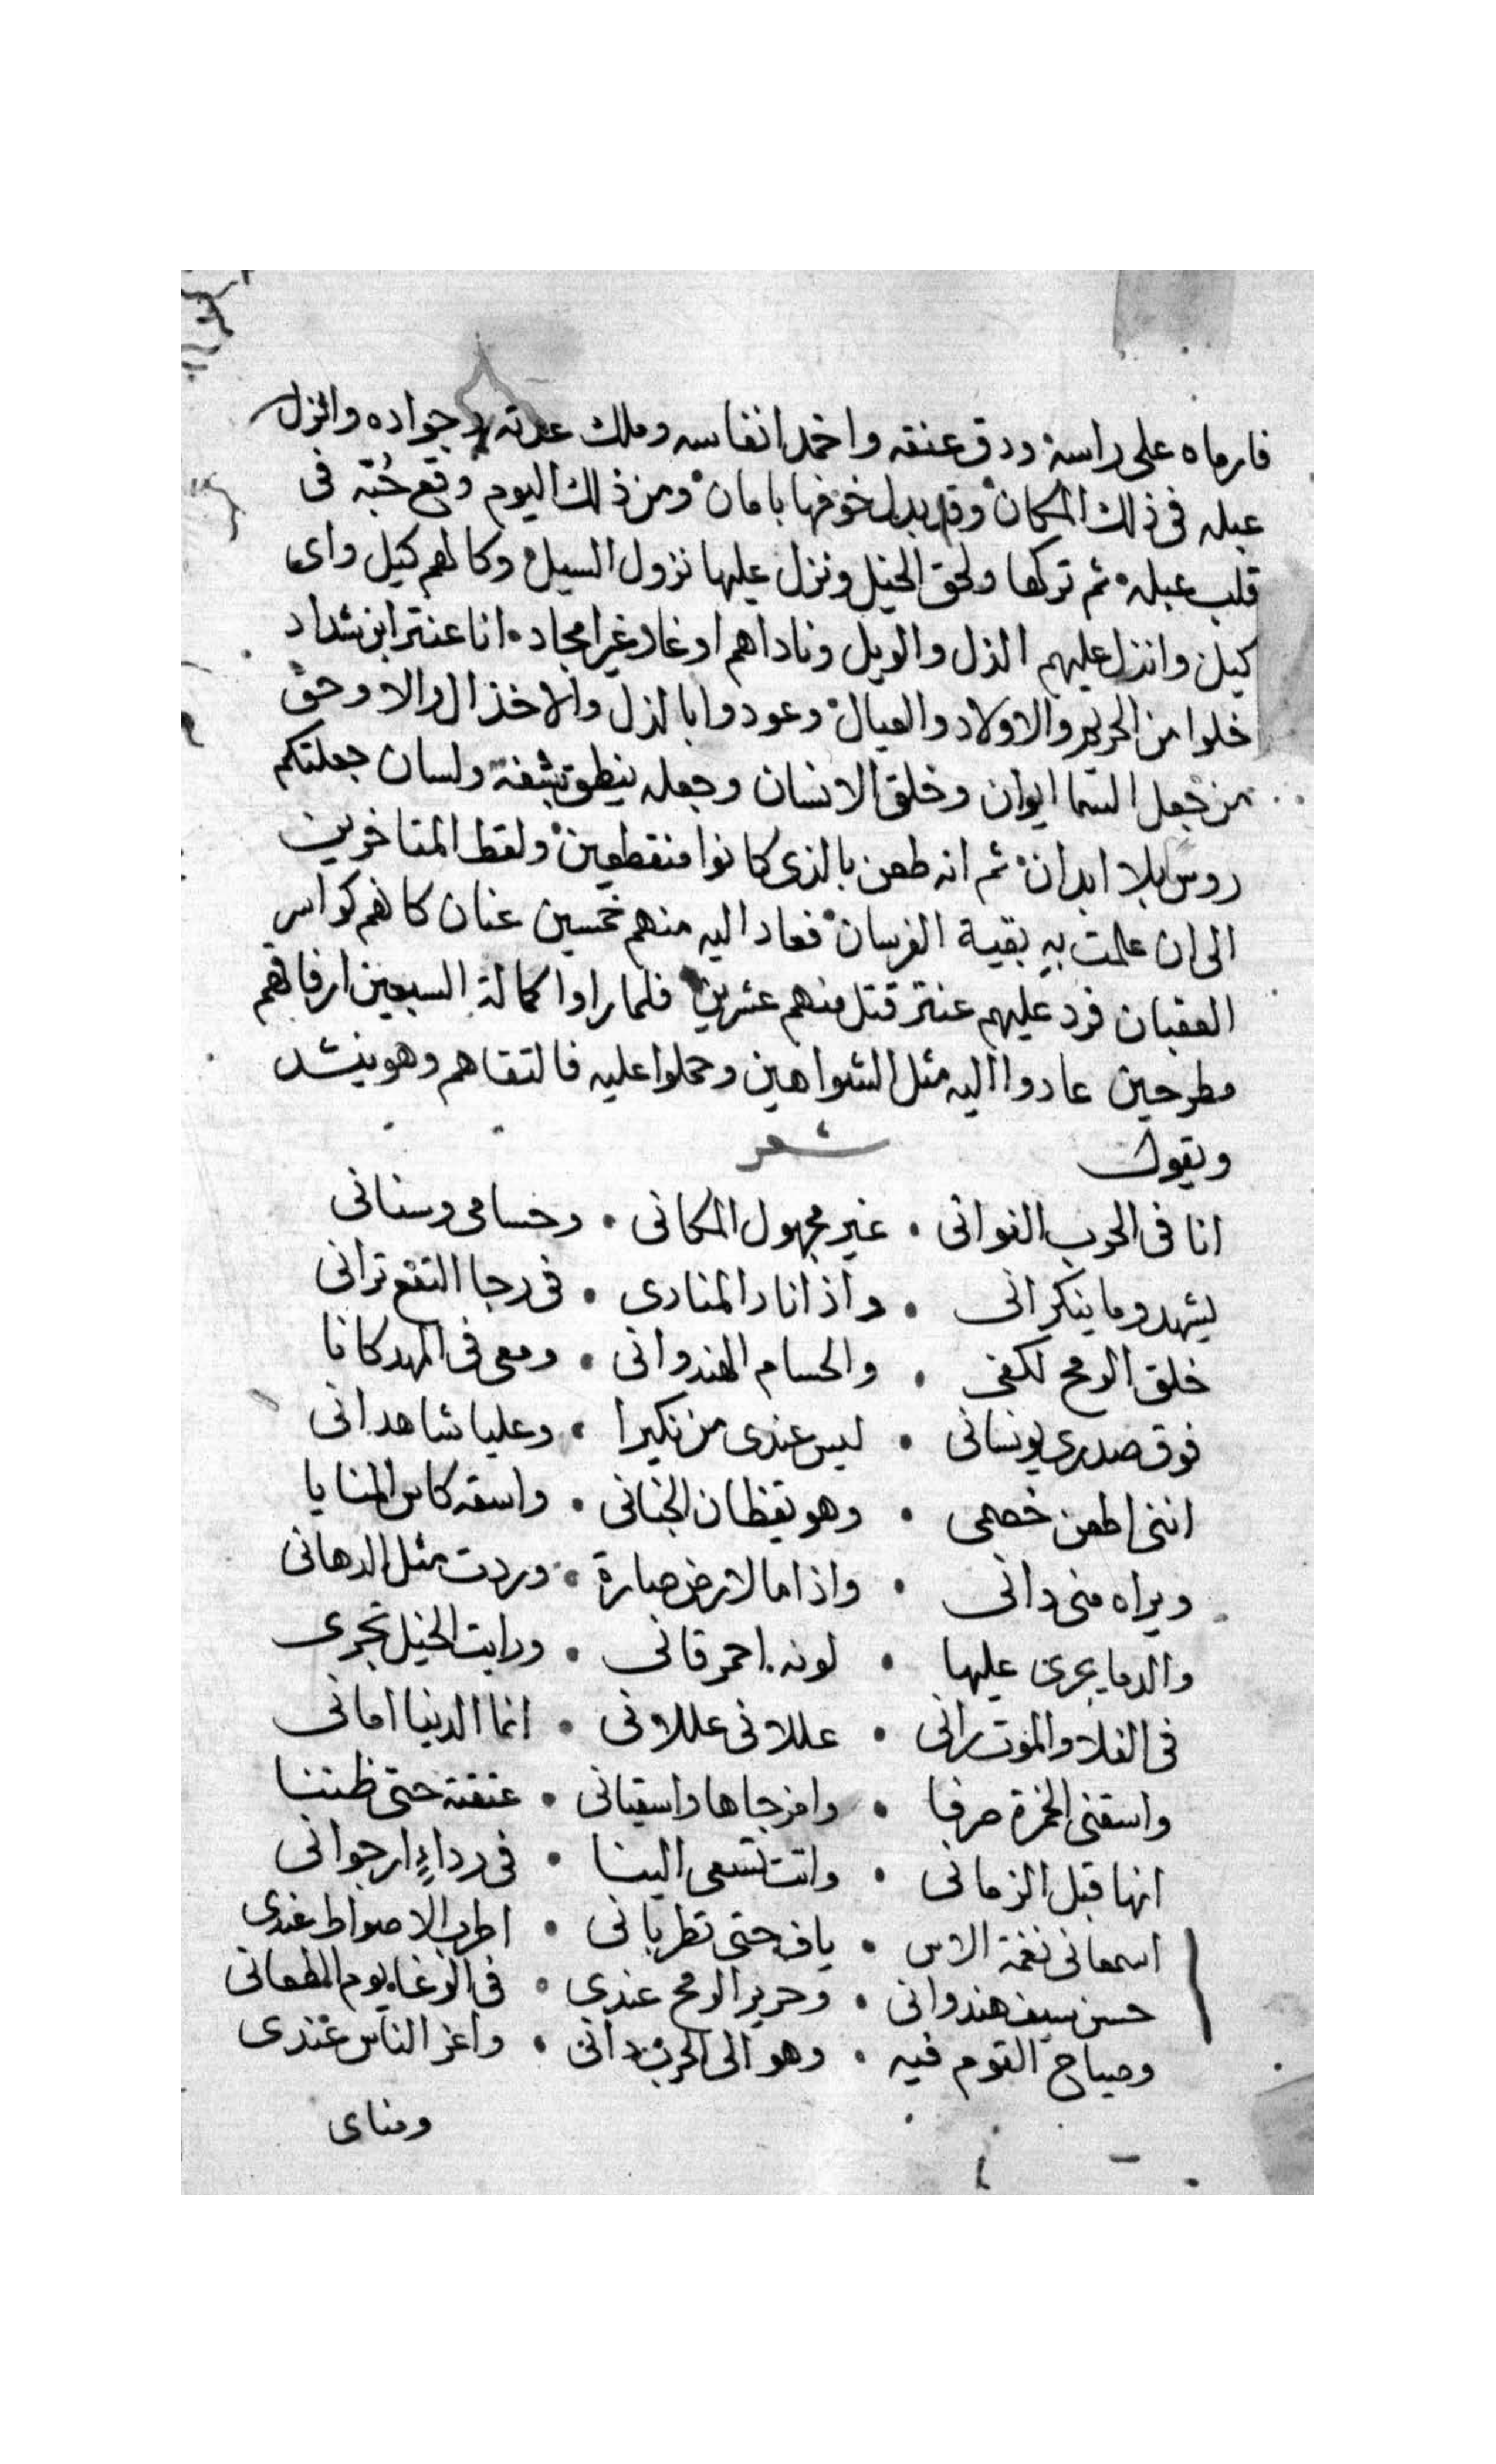 فارماه على راسه ودق عنقه واخمد انفاسه وملك عدته وجواده وانزل
عبله فى ذلك المكان وقد بدل خوفها بامان ومن ذلك اليوم وقع حُبّه فى
قلب عبله ثم تركها ولحق الخيل ونزل عليها نزول السيل وكالهم كيل واى
كيل وانزل عليهم الذل والويل وناداهم اوغاد غير امجاد انا عنتر ابن شداد
خلوا من الحريم والاولاد والعيال وعودوا بالذل والاخذال والا وحق
من جعل السما ايوان وخلق الانسان وجعله ينطق بشفة ولسان جعلتكم
روس بلا ابدان ثم انه طعن بالذى كانوا منقطعين ولقط المتاخرين
الى ان علمت به بقية الفرسان فعاد اليه منهم خمسين عنان كانهم كواسر
العقبان فرد عليهم عنتر قتل منهم عشرين فلما راوا كمالة السبعين ارفاقهم
مطرحين عادوا اليه مثل الشواهين وحملوا عليه فالتقاهم وهو ينشد
ويقول شعر
انا فى الحرب العوانى • غير مجهول المكانى • وحسامى وسنانى
ليشهدو ما ينكرانى • واذا نادا المنادى • فى رجا النقع ترانى
خلق الرمح لكفى • والحسام الهندوانى • ومعى فى المهد كانا
فوق صدرى يونسانى • ليس عندى من نكيرا • وعليا شاهدانى
اننى اطعن خصمى • وهو يقظان الجنانى • واسقه كاس المنايا
ويراه منى دانى • واذا ما الارض صارة • وردت مثل الدهانى
والدما يجرى عليها • لونه احمر قانى • ورايت الخيل تجرى
فى الفلا والموت رانى • عللانى عللانى • انما الدنيا امانى
واسقنى الخمرة صرفا • وامزجاها واسقيانى • عتقته حتى ظننا
انها قبل الزمانى • واتت تسعى الينا • فى رداءٍ ارجوانى
اسمعانى نغمة الاس • ياف حتى تطربانى • اطرب الاصواط عندى
حسن سيف هندوانى • وحرير الرمح عندى • فى الوغا يوم الطعانى
وصياح القوم فيه • وهو الى الحرب دانى • واعز الناس عندى
ومناى